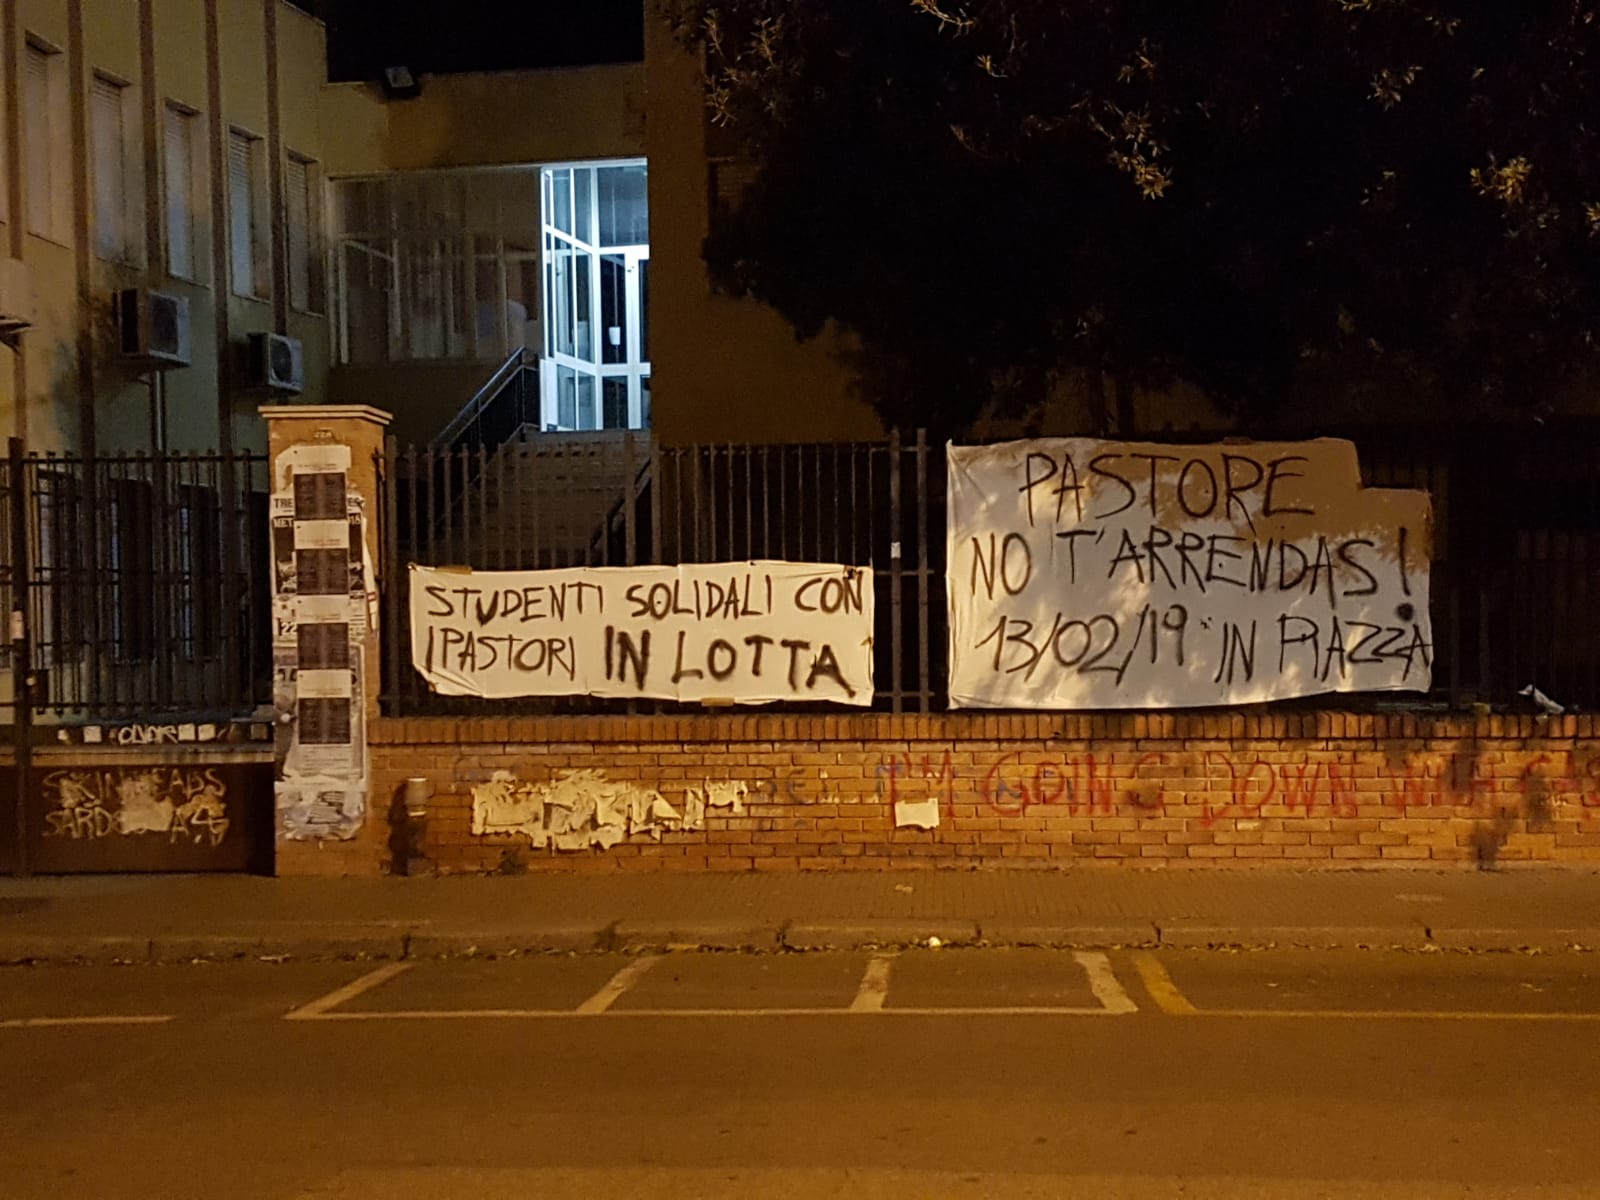 STUDENTI SOLIDALI CON
I PASTORI IN LOTTA
PASTORE
NO T'ARRENDAS!
13/02/19 IN PIAZZA
I'M GOING DOWN WITH
SKINHEADS